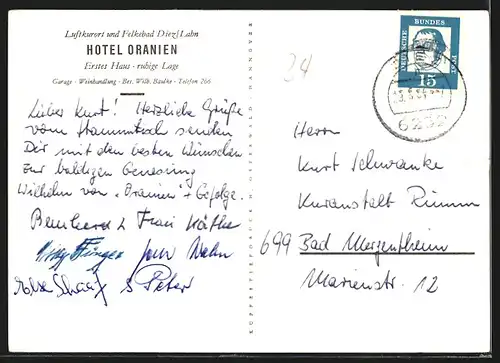 Luftkurort und Felkebad Diez/Lahn
HOTEL ORANIEN
Erstes Haus · ruhige Lage
Garage · Weinhandlung · Bes. Wilh. Baulke · Telefon 266
Lieber Kurt! Herzliche Grüße
vom Stammtisch senden
Dir mit den besten Wünschen
zur baldigen Genesung
Wilhelm von "Oranien" + Gefolge.
Bernhard & Frau Käthe
Peter
34
DEUTSCHE BUNDESPOST
15
Herrn
Kurt Schwanke
Kuranstalt
699 Bad Mergentheim
Marienstr. 12